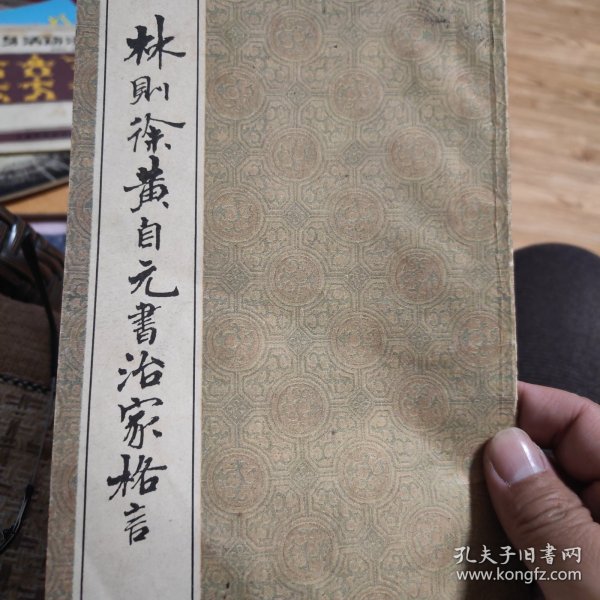 林则徐黄自元書治家格言
孔夫子旧書网
www.kongfz.com